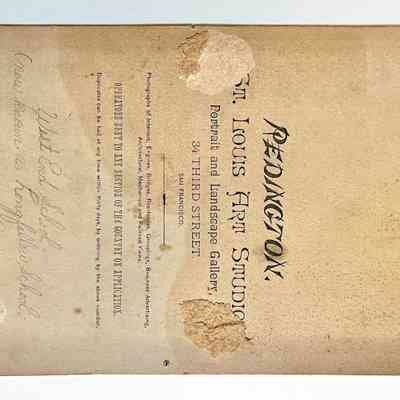 REDINGTON.
ST. LOUIS ART STUDIO
Portrait and Landscape Gallery,
34 THIRD STREET
SAN FRANCISCO.
Photographs of Interiors, Engines, Bridges, Residences, Groupings, Business Advertising,
Architectural, Mechanical and Railroad Views.
OPERATORS SENT TO ANY SECTION OF THE COUNTRY ON APPLICATION.
Duplicates can be had at any time within thirty days, by ordering by the above number.
West End School
(now known as Longfellow School.